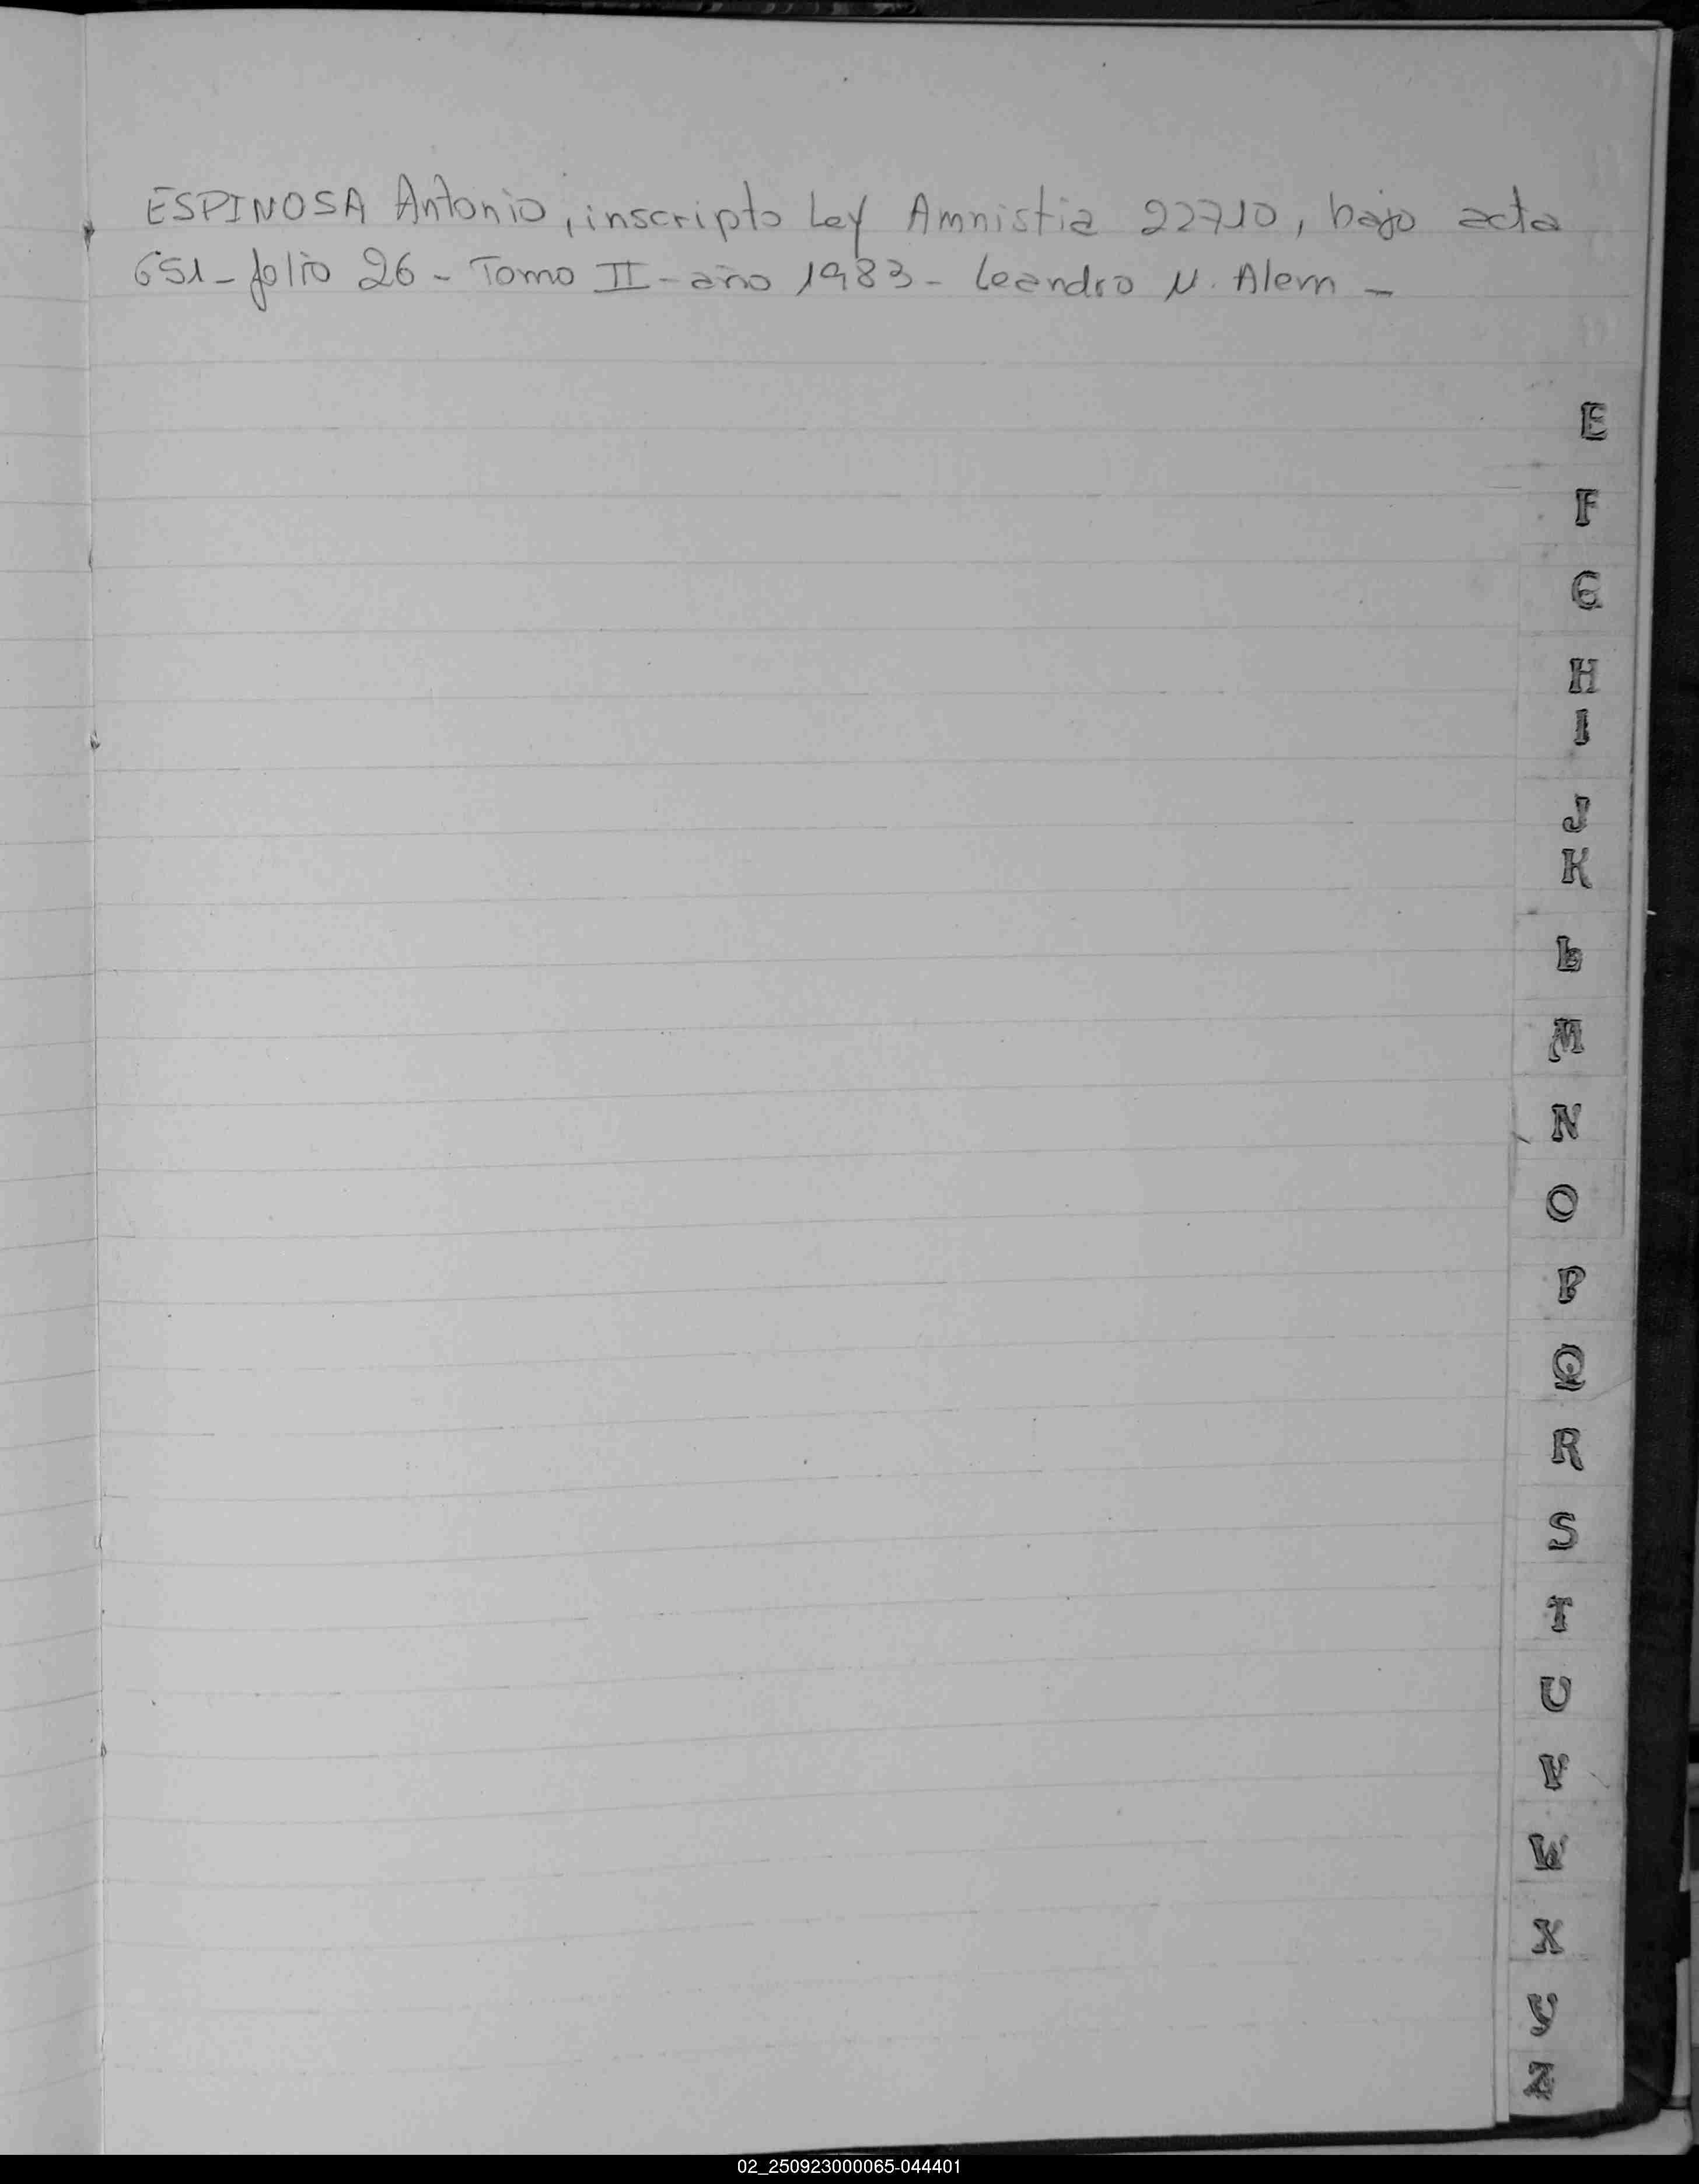 ESPINOSA Antonio, inscripto Ley Amnistia 22710, bajo acta
651 - folio 26 - Tomo II - año 1983 - Leandro N. Alem -
E
F
G
H
I
J
K
L
M
N
O
P
Q
R
S
T
U
V
W
X
Y
Z
02_250923000065-044401